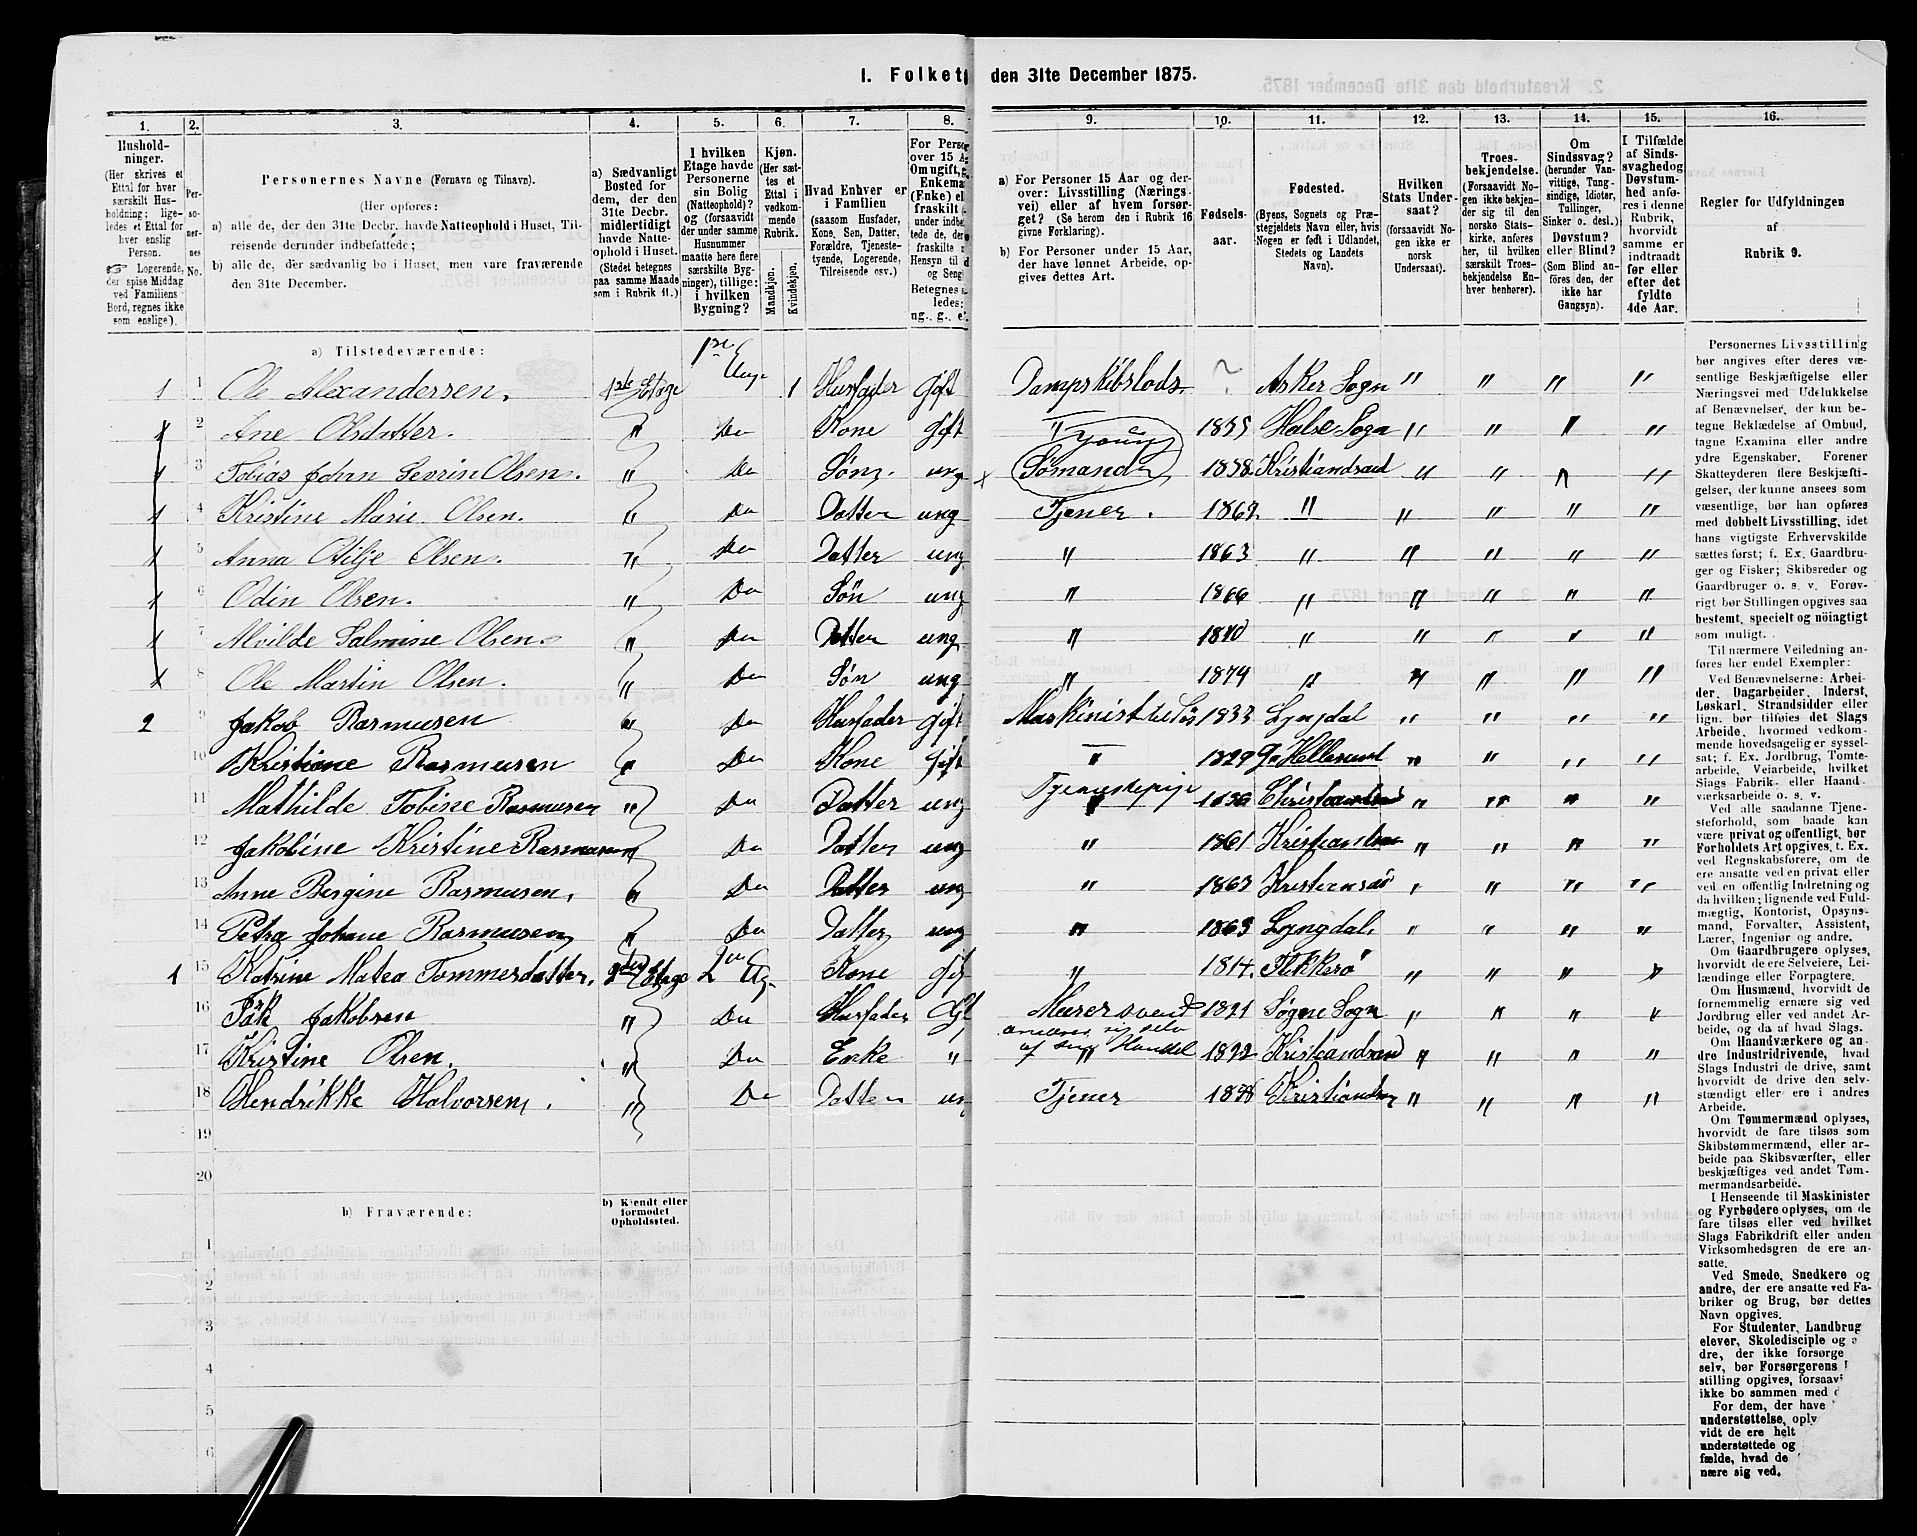 I. Folket den 31te December 1875.
1. 2. 3. 4. 5. 6. 7. 8. 9. 10. 11. 12. 13. 14. 15. 16.
Hushold-
ninger.
(Her skrives et
Ettal for hver
særskilt Hus-
holdning; lige-
ledes et Ettal for
hver enslig
Person.
☞ Logerende,
der spise Middag
ved Familiens
Bord, regnes ikke
som enslige).
Per-
so-
ner-
nes
No.
Personernes Navne (Fornavn og Tilnavn).
(Her opføres:
a) alle de, der den 31te Decbr. havde Natteophold i Huset, Til-
reisende derunder indbefattede;
b) alle de, der sædvanlig bo i Huset, men vare fraværende
den 31te December.
a) Sædvanligt
Bosted for
dem, der den
31te Decbr.
midlertidigt
havde Natte-
ophold i Huset.
(Stedet betegnes
paa samme Maade
som i Rubrik 11.)
I hvilken
Etage havde
Personerne
sin Bolig
(Natteophold)?
og (forsaavidt
der under samme
Husnummer
maatte høre flere
særskilte Byg-
ninger), tillige:
i hvilken
Bygning?
Kjøn.
(Her sæt-
tes et
Ettal i
vedkom-
mende
Rubrik.)
Mandkjøn.
Kvindekjøn.
Hvad Enhver er
i Familien
(saasom Husfader,
Kone, Søn, Datter,
Forældre, Tjeneste-
tyende, Logerende,
Tilreisende osv.)
For Perso
over 15 A
Om ugift, g
Enkema
(Enke) el
fraskilt
under indbe
tede de, de
fraskilte
Hensyn til
og Seng
Betegnes s
ledes:
ng., g., e.
a) For Personer 15 Aar og der-
over: Livsstilling (Nærings-
vei) eller af hvem forsør-
get? (Se herom den i Rubrik 16
givne Forklaring).
b) For Personer under 15 Aar,
der have lønnet Arbeide, op-
gives dettes Art.
Fødsels-
aar.
Fødested.
(Byens, Sognets og Præ-
stegjeldets Navn eller, hvis
Nogen er født i Udlandet,
Stedets og Landets
Navn).
Hvilken
Stats Under-
saat?
(forsaavidt No-
gen ikke er
norsk
Undersaat).
Troes-
bekjendelse.
(Forsaavidt No-
gen ikke bekjen-
der sig til den
norske Stats-
kirke, anføres
her, til hvilken
særskilt Troes-
bekjendelse En-
hver henhører).
Om
Sindssvag?
(herunder Van-
vittige, Tung-
sindige, Idioter,
Tullinger,
Sinker o. desl.)
Døvstum?
eller Blind?
(Som Blind an-
føres den, der
ikke har
Gangsyn).
I Tilfælde
af Sinds-
svaghed og
Døvstum-
hed anfø-
res i denne
Rubrik,
hvorvidt
samme er
indtraadt
før eller
efter det
fyldte
4de Aar.
Regler for Udfyldningen
af
Rubrik 9.
a) Tilstedeværende:
1 1 Ole Alexandersen. 1ste Etage 1 Husfader Gift Dampskibslods ? Asker Sogn " " " "
1 2 Ane Olsdatter. " Do Kone Gift " 1835 Halse Sogn " " " "
1 3 Tobias Johan Sevrin Olsen. " Do Søn. ung x Sømand 1858 Kristiansand " " " "
1 4 Kristine Marie Olsen. " Do Datter ung Tjener. " " " " "
1 5 Anna Otilje Olsen. " Do Datter ung " 1863 " " " " "
1 6 Odin Olsen. " Do Søn ung " 1866 " " " " "
1 7 Alvilde Salmine Olsen. " Do Datter ung " 1870 " " " " "
1 8 Ole Martin Olsen. " Do Søn ung " 1874 " " " " "
2 9 Jakob Rasmusen " Do Husfader Gift Maskinist 1833 Lyngdal " " " "
10 Kristiane Rasmusen " Do Kone Gift " 1829 Hellesund " " " "
11 Mathilde Tobine Rasmusen " Do Datter ung Tjenestepige Christiansand " " " "
12 Jakobine Kristine Rasmusen " Do Datter ung " 1861 Kristiansan " " " "
13 Anne Bergine Rasmusen. " Do Datter ung " 1863 " " " "
14 Petra Johane Rasmusen " Do Datter ung " Lyngdal. " " " "
1 15 Katrine Matea Tommersdatter. 2den Etage Kone gif " 1814. Flekkerø " " " "
16 Jakobsen " Do Husfader Murersvend 1821 Søgne Sogn " " " "
17 Kristine Olsen. " Do Enke " ernærer sig selv af Handel 1822 Kristiansand " " " "
18 Hendrikke Halvorsen. " Do Datter un Tjener Kristiansan " " " "
19
20
b) Fraværende:
b) Kjendt eller
formodet
Opholdssted.
1
2
3
4
5
6
Personernes Livsstilling
bør angives efter deres væ-
sentlige Beskjæftigelse eller
Næringsvei med Udelukkelse
af Benævnelser, der kun be-
tegne Beklædelse af Ombud,
tagne Examina eller andre
ydre Egenskaber. Forener
Skatteyderen flere Beskjæfti-
gelser, der kunne ansees som
væsentlige, bør han opføres
med dobbelt Livsstilling, idet
hans vigtigste Erhvervskilde
sættes først; f. Ex. Gaardbru-
ger og Fisker; Skibsreder og
Gaardbruger o. s. v. Forøv-
rigt bør Stillingen opgives saa
bestemt, specielt og nøiagtigt
som muligt.
Til nærmere Veiledning an-
føres her endel Exempler:
Ved Benævnelserne: Arbei-
der, Dagarbeider, Inderst,
Løskarl, Strandsidder eller
lign. bør tilføies det Slags
Arbeide, hvormed vedkom-
mende hovedsagelig er syssel-
sat; f. Ex. Jordbrug, Tomte-
arbeide, Veiarbeide, hvilket
Slags Fabrik- eller Haand-
værksarbeide o. s. v.
Ved alle saadanne Tjene-
steforhold, som baade kan
være privat og offentligt, bør
Forholdets Art opgives, t. Ex.
ved Regnskabsførere, om de
ere ansatte ved en privat eller
ved en offentlig Indretning og
da hvilken; lignende ved Fuld-
mægtig, Kontorist, Opsyns-
mand, Forvalter, Assistent,
Lærer, Ingeniør og andre.
Om Gaardbrugere oplyses,
hvorvidt de ere Selveiere, Lei-
lændinge eller Forpagtere.
Om Husmænd, hvorvidt de
fornemmelig ernære sig ved
Jordbrug eller ved andet Ar-
beide, og da af hvad Slags.
Om Haandværkere og an-
dre Industridrivende, hvad
Slags Industri de drive, samt
hvorvidt de drive den selv-
stændigt eller ere i andres
Arbeide.
Om Tømmermænd oplyses,
hvorvidt de fare tilsøs som
Skibstømmermænd, eller ar-
beide paa Skibsværfter, eller
beskjæftiges ved andet Tøm-
mermandsarbeide.
I Henseende til Maskinister
og Fyrbødere oplyses, om de
fare tilsøs eller ved hvilket
Slags Fabrikdrift eller anden
Virksomhedsgren de ere an-
satte.
Ved Smede, Snedkere og
andre, der ere ansatte ved Fa-
briker og Brug, bør dettes
Navn opgives.
For Studenter, Landbrug
elever, Skoledisciple og
dre, der ikke forsørge
selv, bør Forsørgerens
stilling opgives, forsaavi
ikke bo sammen med
For dem, der have
understøttelse, oplv
vidt de ere helt
understøttede og
fælde, hvad de
nære sig ved.